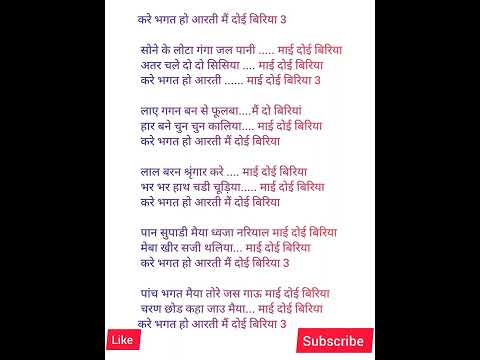 करे भगत हो आरती मैं दोई बिरिया 3
सोने के लोटा गंगा जल पानी ..... माई दोई बिरिया
अतर चले दो दो सिसिया .... माई दोई बिरिया
करे भगत हो आरती ...... माई दोई बिरिया 3
लाए गगन बन से फूलबा....मैं दो बिरियां
हार बने चुन चुन कालिया.... माई दोई बिरिया
करे भगत हो आरती मैं दोई बिरिया
लाल बरन श्रृंगार करे .... माई दोई बिरिया
भर भर हाथ चडी चूड़िया..... माई दोई बिरिया
करे भगत हो आरती मैं दोई बिरिया
पान सुपाडी मैया ध्वजा नरियाल माई दोई बिरिया
मेबा खीर सजी थलिया... माई दोई बिरिया
करे भगत हो आरती मैं दोई बिरिया 3
पांच भगत मैया तोरे जस गाऊ माई दोई बिरिया
चरण छोड कहा जाउ मैया... माई दोई बिरिया
करे भगत हो आरती मैं दोई बिरिया 3
Like
Subscribe